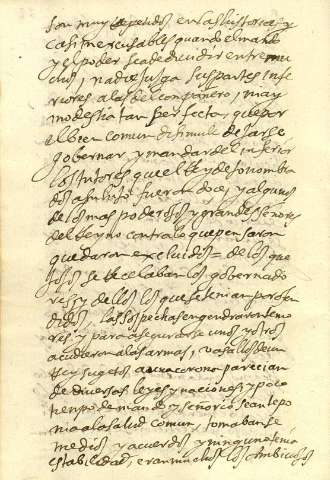 son muy repetidos en las historias y
casi inexcusables quando el mando
y el poder se a de dividir entre mu
chos, nadie juzga sus partes infe
riores a las del conpañero, ni ay
modestia tan perfecta, que por
el bien comun disimule dejarse
gobernar y mandar del inferior
los tutores que el Rey dejo nombra
dos a su hijo fueron doce, y algunos
de los mas poderosos y grandes señores
del Reyno contra lo que pensaron
quedaron excluidos = de los que
josos se recelaban los gobernado
res y dellos los que se tenian por ofen
didos, las sospechas engendraron temo
res y para asegurarse unos y otros
acudieron a las armas, vasallos de un
Rey sugetos a una corona parecian
de diversas leyes y naciones y poco
tiempo de mando y señorio se antepo
nia a la salud comun, tomabanse
medios y acuerdos y ninguno tenia
estabilidad, eran muchos los ambiciosos